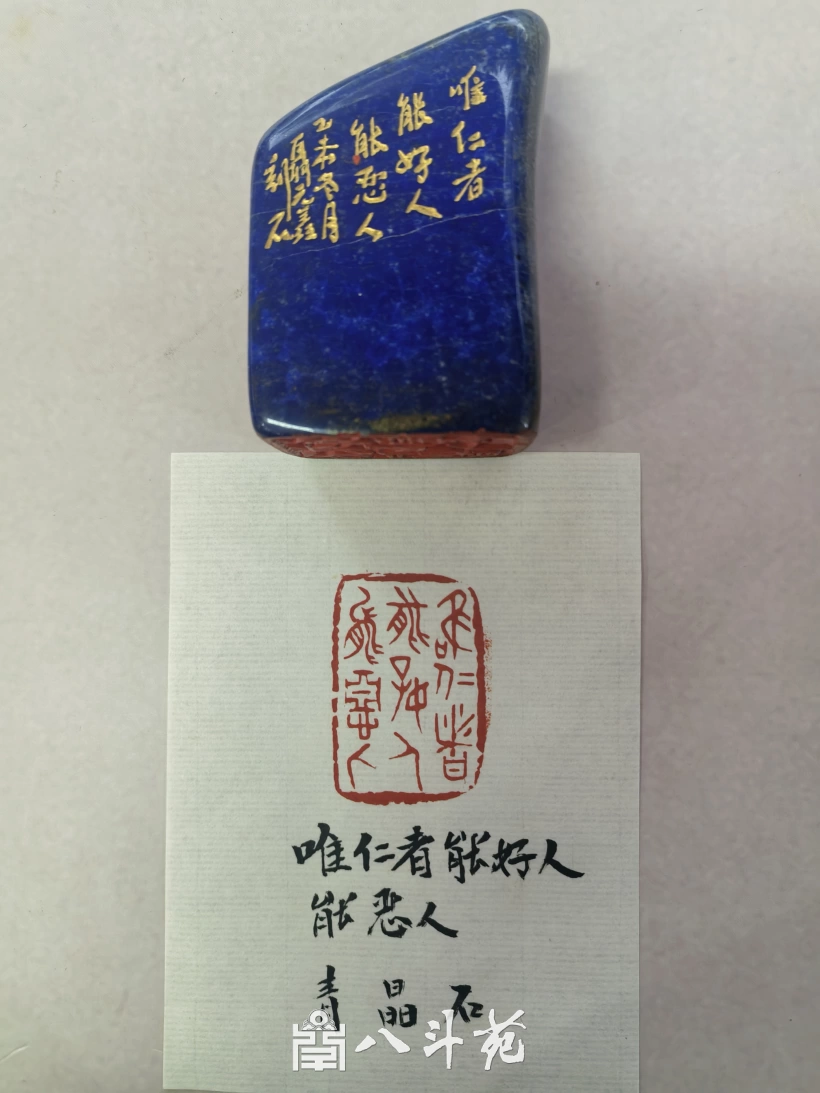 唯仁者
能好人
能恶人
乙未冬月
聶元鑫
刻石
唯仁者
能好人
能恶人
唯仁者能好人
能恶人
青晶石
八斗苑